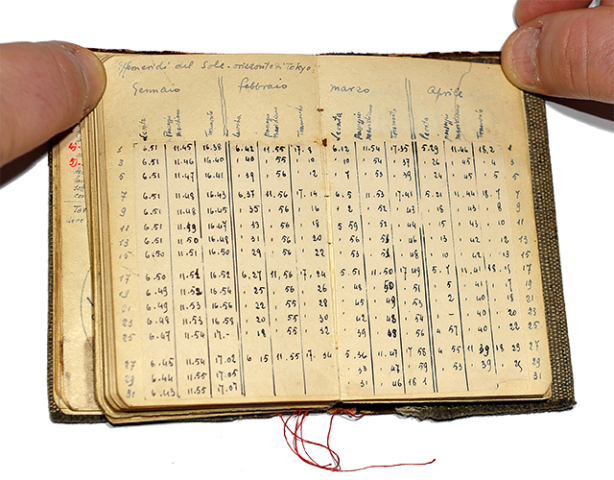 Effemeridi del Sole - orizzonte di Tokyo
Gennaio febbraio marzo Aprile
Levata Passaggio meridiano Tramonto Levata Passaggio meridiano Tramonto Levata Passaggio meridiano Tramonto Levata Passaggio meridiano Tramonto
6.51 11.45 16.38 6.42 11.55 17. 6.12 11.54 17.35 5.29 11.44 18.2
6.51 11.46 16.40 . 40 . 55 . 10 . 10 . 54 . 37 . 26 . 45 . 4
6.51 11.47 16.41 . 39 . 56 . 12 . 7 . 53 . 39 . 24 . 45 . 5 5
7 6.51 11.48 16.43 6.37 11.56 17.14 6.5 11.53 17.41 5.21 11.44 18.7 7
9 6.51 11.48 16.45 . 35 . 56 . 16 . 2 . 52 . 43 . 18 . 43 . 9 9
11 6.51 11.49 16.47 . 33 . 56 . 18 5 59 . 52 . 44 . 15 . 43 . 10 11
13 6.51 11 50 16.48 . 31 . 56 . 20 . 56 . 51 . 46 . 13 . 42 . 12 13
15 6.50 11.51 16.50 . 29 . 56 . 22 . 53 . 51 . 48 . 10 . 42 . 13 15
17 6.50 11.51 16.52 6.27 11.56 17.24 5.51 11.50 17.49 5.7 11.41 18. 17
19 6.49 11.52 16.54 . 25 . 55 . 26 . 48 . 50 . 51 . 5 . 41 . 19
21 6.49 11.53 16.56 . 22 . 55 . 28 . 45 . 49 . 53 . 2 . 40 . 18 21
23 6.48 11.53 16.58 . 20 . 55 . 30 . 42 . 48 . 54 . . 40 . 20 23
25 6.47 11.54 17.- . 18 . 55 . 32 . 39 . 48 . 56 4 57 . 40 . 22 25
27 6.45 11.54 17.02 6 15 11.55 17. 34 5.36 11.47 17 58 4 55 11 39 18 23 27
29 6.44 11.55 17.05 . 33 . 47 . 59 . 53 . 39 . 25 29
31 6.43 11.55 17.07 . 31 . 46 18 1 31